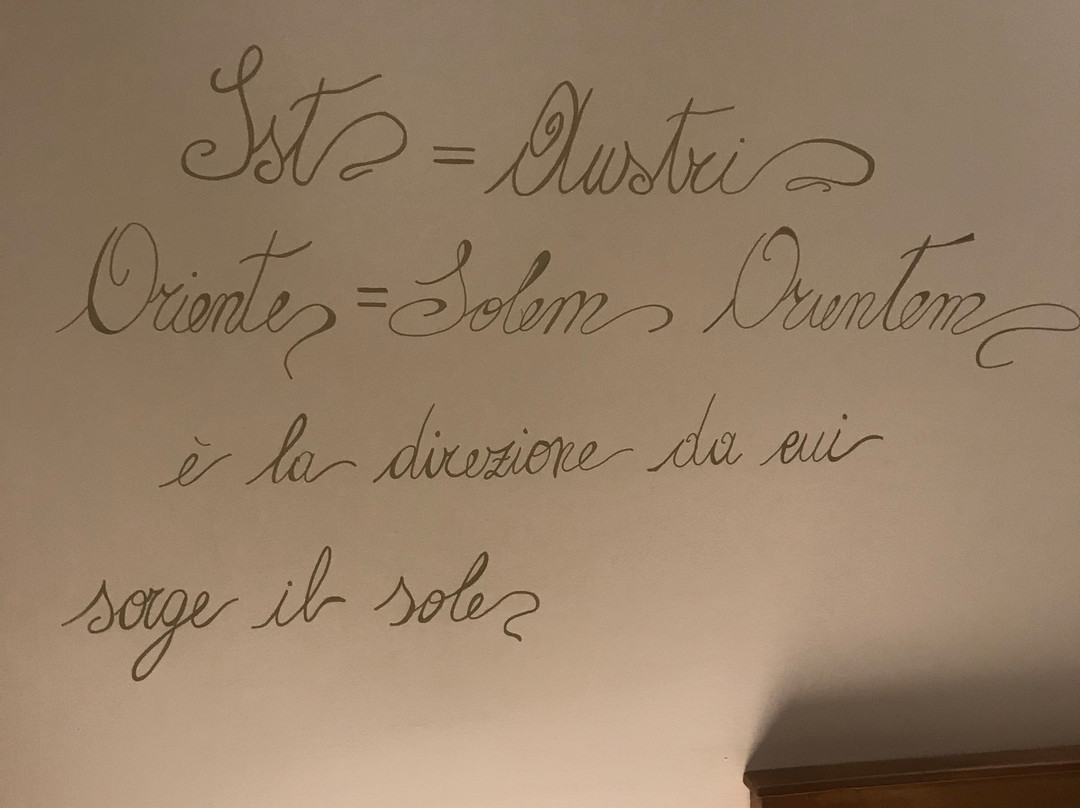 Est = Austri
Oriente = Solem Orientem
è la direzione da cui
sorge il sole